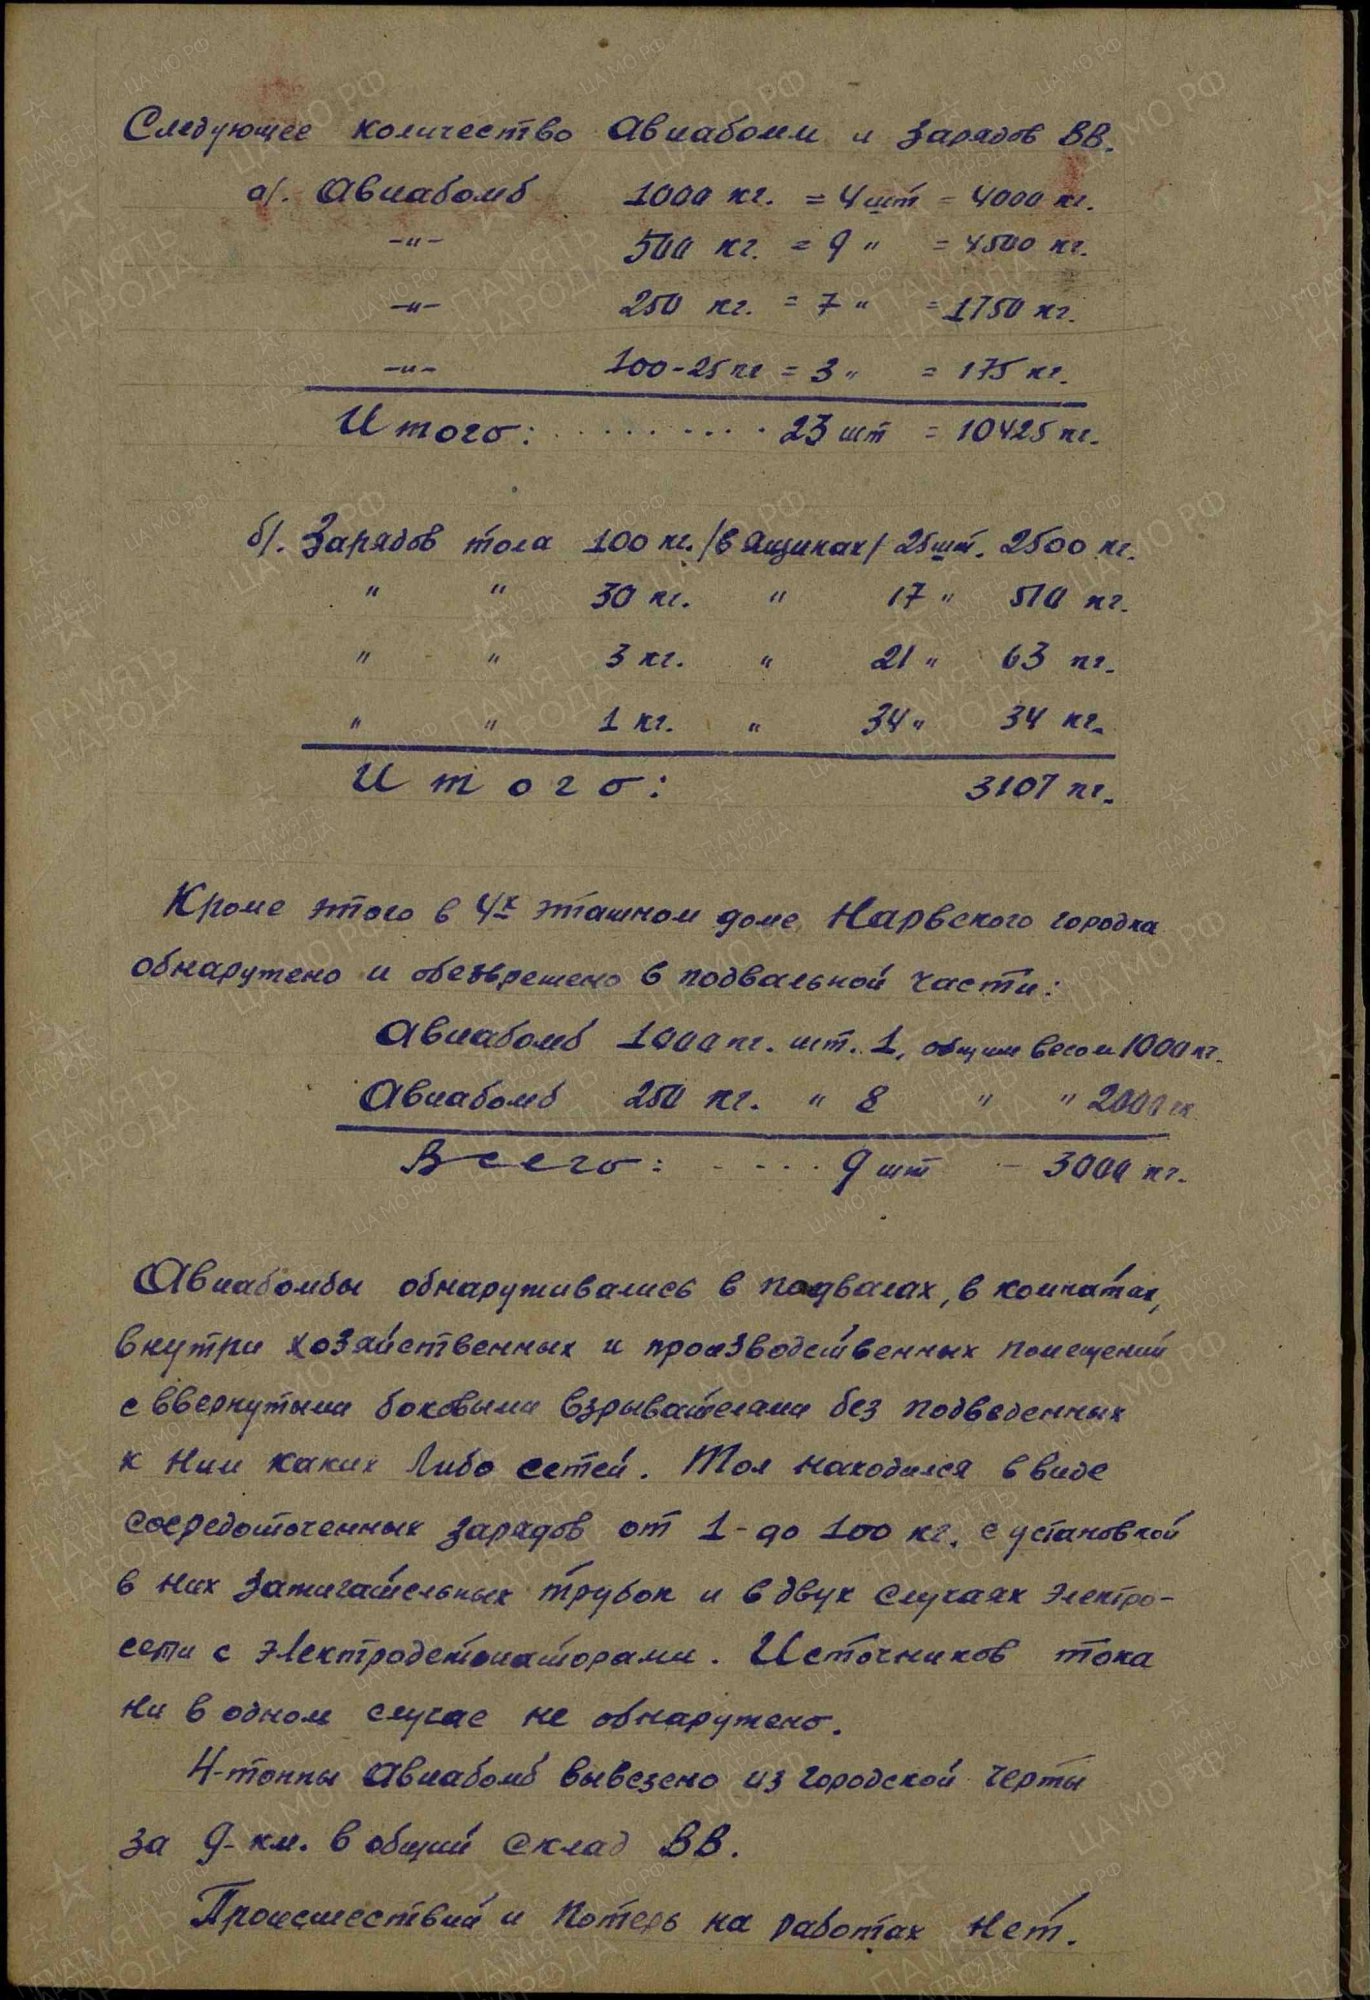 Следующее количество Авиабомм и зарядов ВВ.
а/. Авиабомб 1000 кг. = 4 шт = 4000 кг.
-"- 500 кг. = 9 " = 4500 кг.
-"- 250 кг. = 7 " = 1750 кг.
-"- 100-25 кг = 3 " = 175 кг.
Итого: . . . . . . . . 23 шт = 10425 кг.
б/. Зарядов тола 100 кг. /в ящиках/ 25 шт. 2500 кг.
" " 30 кг. " 17 " 510 кг.
" " 3 кг. " 21 " 63 кг.
" " 1 кг. " 34 " 34 кг.
Итого: 3107 кг.
Кроме этого в 4х этажном доме Нарвского городка
обнаружено и обезврежено в подвальной части:
Авиабомб 1000 кг. шт. 1, общим весом 1000 кг.
Авиабомб 250 кг. " 8 " " 2000 кг
Всего: . . . . 9 шт - 3000 кг.
Авиабомбы обнаруживались в подвалах, в комнатах,
внутри хозяйственных и производственных помещений
с ввернутыми боковыми взрывателями без подведенных
к ним каких либо сетей. Тол находился в виде
сосредоточенных зарядов от 1- до 100 кг. с установкой
в них зажигательных трубок и в двух случаях электро-
сети с электродетонаторами. Источников тока
ни в одном случае не обнаружено.
4-тонны Авиабомб вывезено из городской черты
за 9- км. в общий склад ВВ.
Происшествий и потерь на работах нет.
ПАМЯТЬ НАРОДА
ЦА МО РФ